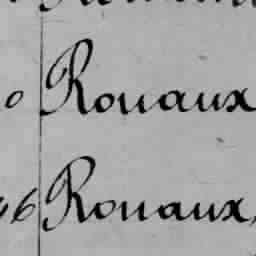 Rouaux
46 Rouaux,